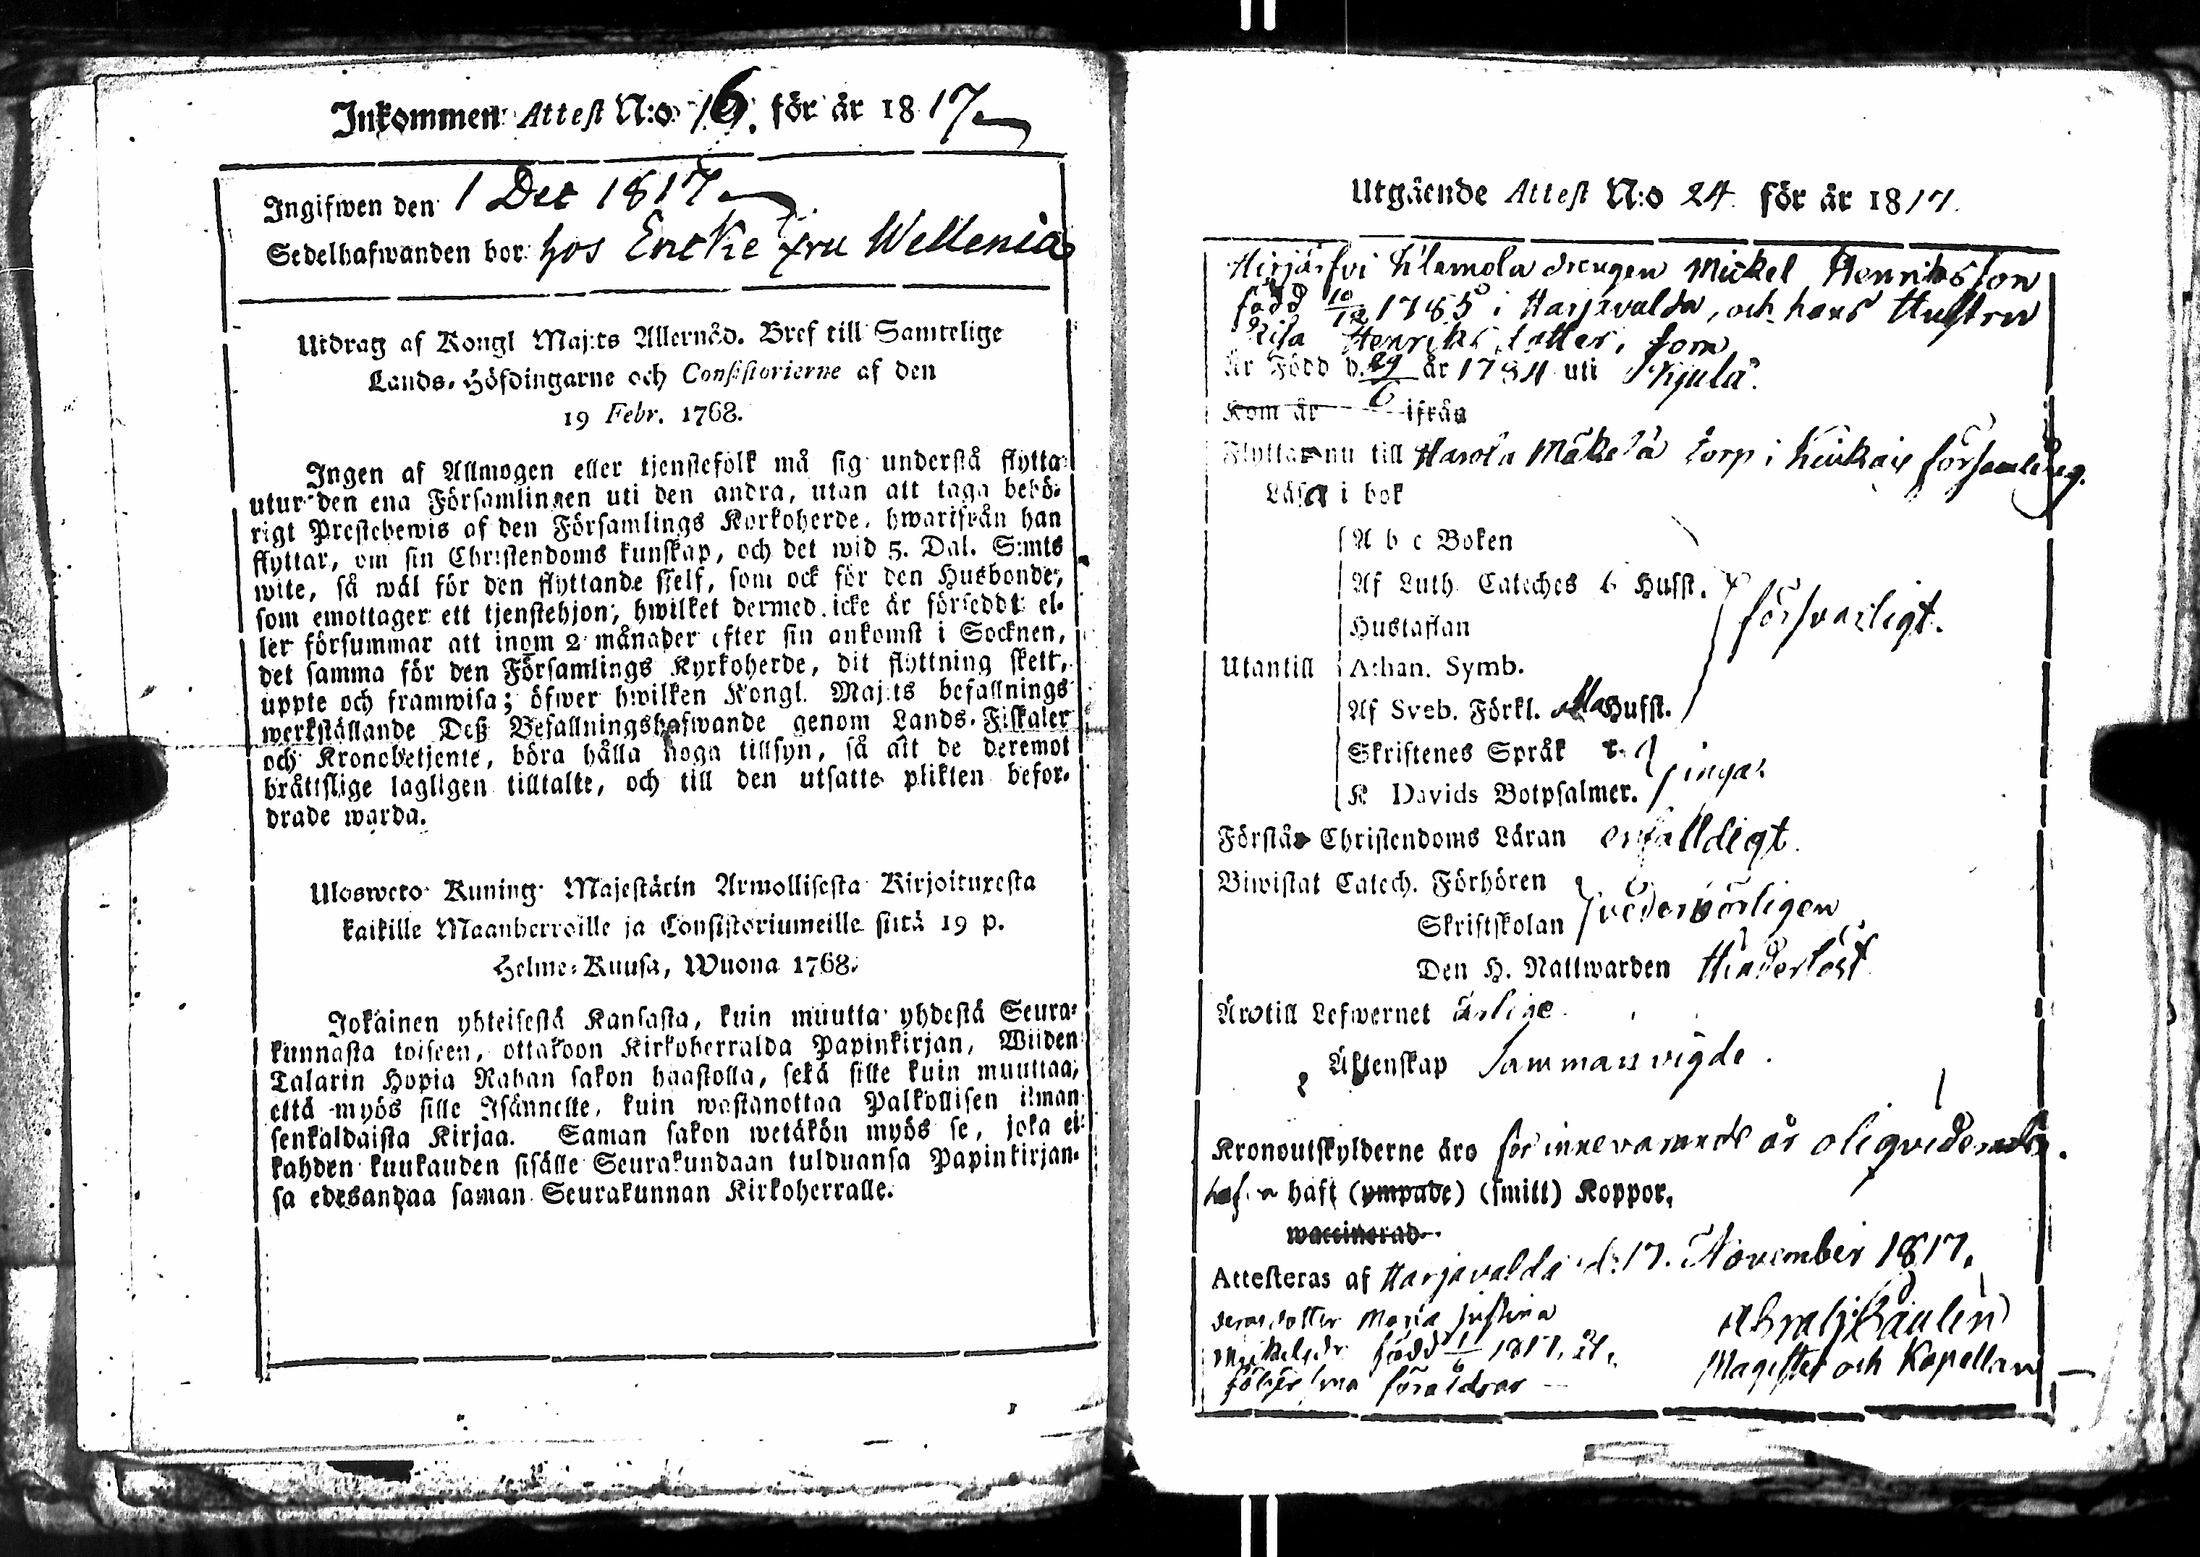 Inkommen Attest N:o 16. för år 1817
Ingifwen den 1 Dec 1817
Sedelhafwanden bor hos Encke fru Wellenia
Utdrag af Kongl Maj:ts Allernåd. Bref till Samtelige
Lands-Höfdingarne och Consistorierne af den
19 Febr. 1768.
Ingen af Allmogen eller tjenstefolk må sig understå flytta
utur den ena Församlingen uti den andra, utan att taga behö-
rigt Prestebewis af den Församlings Kyrkoherde, hwarifrån han
flyttar, om sin Christendoms kunskap, och det wid 5. Dal. S:mts
wite, så wäl för den flyttande sielf, som ock för den Husbonde,
som emottager ett tjenstehjon, hwilket dermed icke är förseddt el-
ler försummar att inom 2 månader efter sin ankomst i Socknen,
det samma för den Församlings Kyrkoherde, dit flyttning skett,
uppte och framwisa; öfwer hwilken Kongl. Maj:ts befallnings
werkställande Deß Befallningshafwande genom Lands-Fiskaler
och Kronobetjente, böra hålla noga tillsyn, så att de deremot
bråttslige lagligen tilltalte, och till den utsatte plikten befor-
drade warda.
Ulosweto Kuning Majestätin Armollisesta Kirjoituxesta
kaikille Maanherroille ja Consistoriumeille siitä 19 p.
Helme-Kuusa, Wuona 1768.
Jokainen yhteisestä Kansasta, kuin muutta yhdestä Seura-
kunnasta toiseen, ottakoon Kirkoherralda Papinkirjan, Wiiden
Talarin Hopia Rahan sakon haastolla, sekä sille kuin muuttaa,
että myös sille Isännelle, kuin wastanottaa Palkollisen ilman
senkaldaista Kirjaa. Saman sakon wetäkön myös se, joka ei
kahden kuukauden sisälle Seurakundaan tulduansa Papinkirjan-
sa edesandaa saman Seurakunnan Kirkoherralle.
Utgående Attest N:o 24. för år 1817.
Hirjärfvi Klemola drengen Mickel Henriksson
född 10/12 1785 i Harjavalda, och hans Hustru
Lisa Henriksdotter, som
är Född d. 29/6 år 1784 uti Kjula.
Kom år ifrån
Flyttar nu till Harola Mäkelä torp i Keukais församling.
Läsa i bok
A b c Boken
Af Luth. Cateches 6 Hufst.
Hustaflan försvarligt.
Utantill Athan. Symb.
Af Sveb. Förkl. alla Hufst.
Skriftenes Språk
K Davids Botpsalmer. inga
Förstår Christendoms Läran enfalldigt.
Biwistat Catech. Förhören
Skriftskolan vederbörligen
Den H. Nattwarden Hinderlöst
Äro till Lefwernet ärlige
Äktenskap Sammanvigde.
Kronoutskylderne äro för innevarande år oliqviderade.
hafva haft (ympade) (smitt) Koppor,
waccinerad
Attesteras af Harjavalda d. 17. November 1817.
deras dotter Maria Justina
Mickelsdr född 1/6 1817.
följer sina föräldrar
Magister och Kapellan